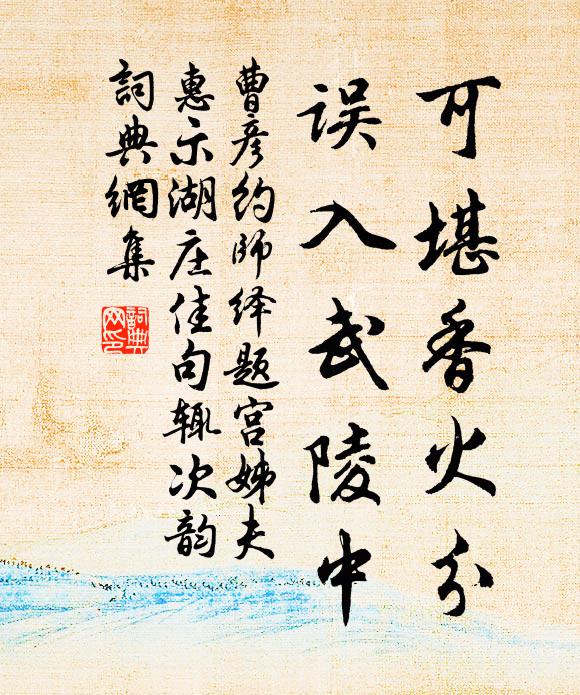 可堪香火分
误入武陵中
曹彦约师绎题宫姊夫
惠示湖庄佳句辄次韵
詞典網集
詞典網印